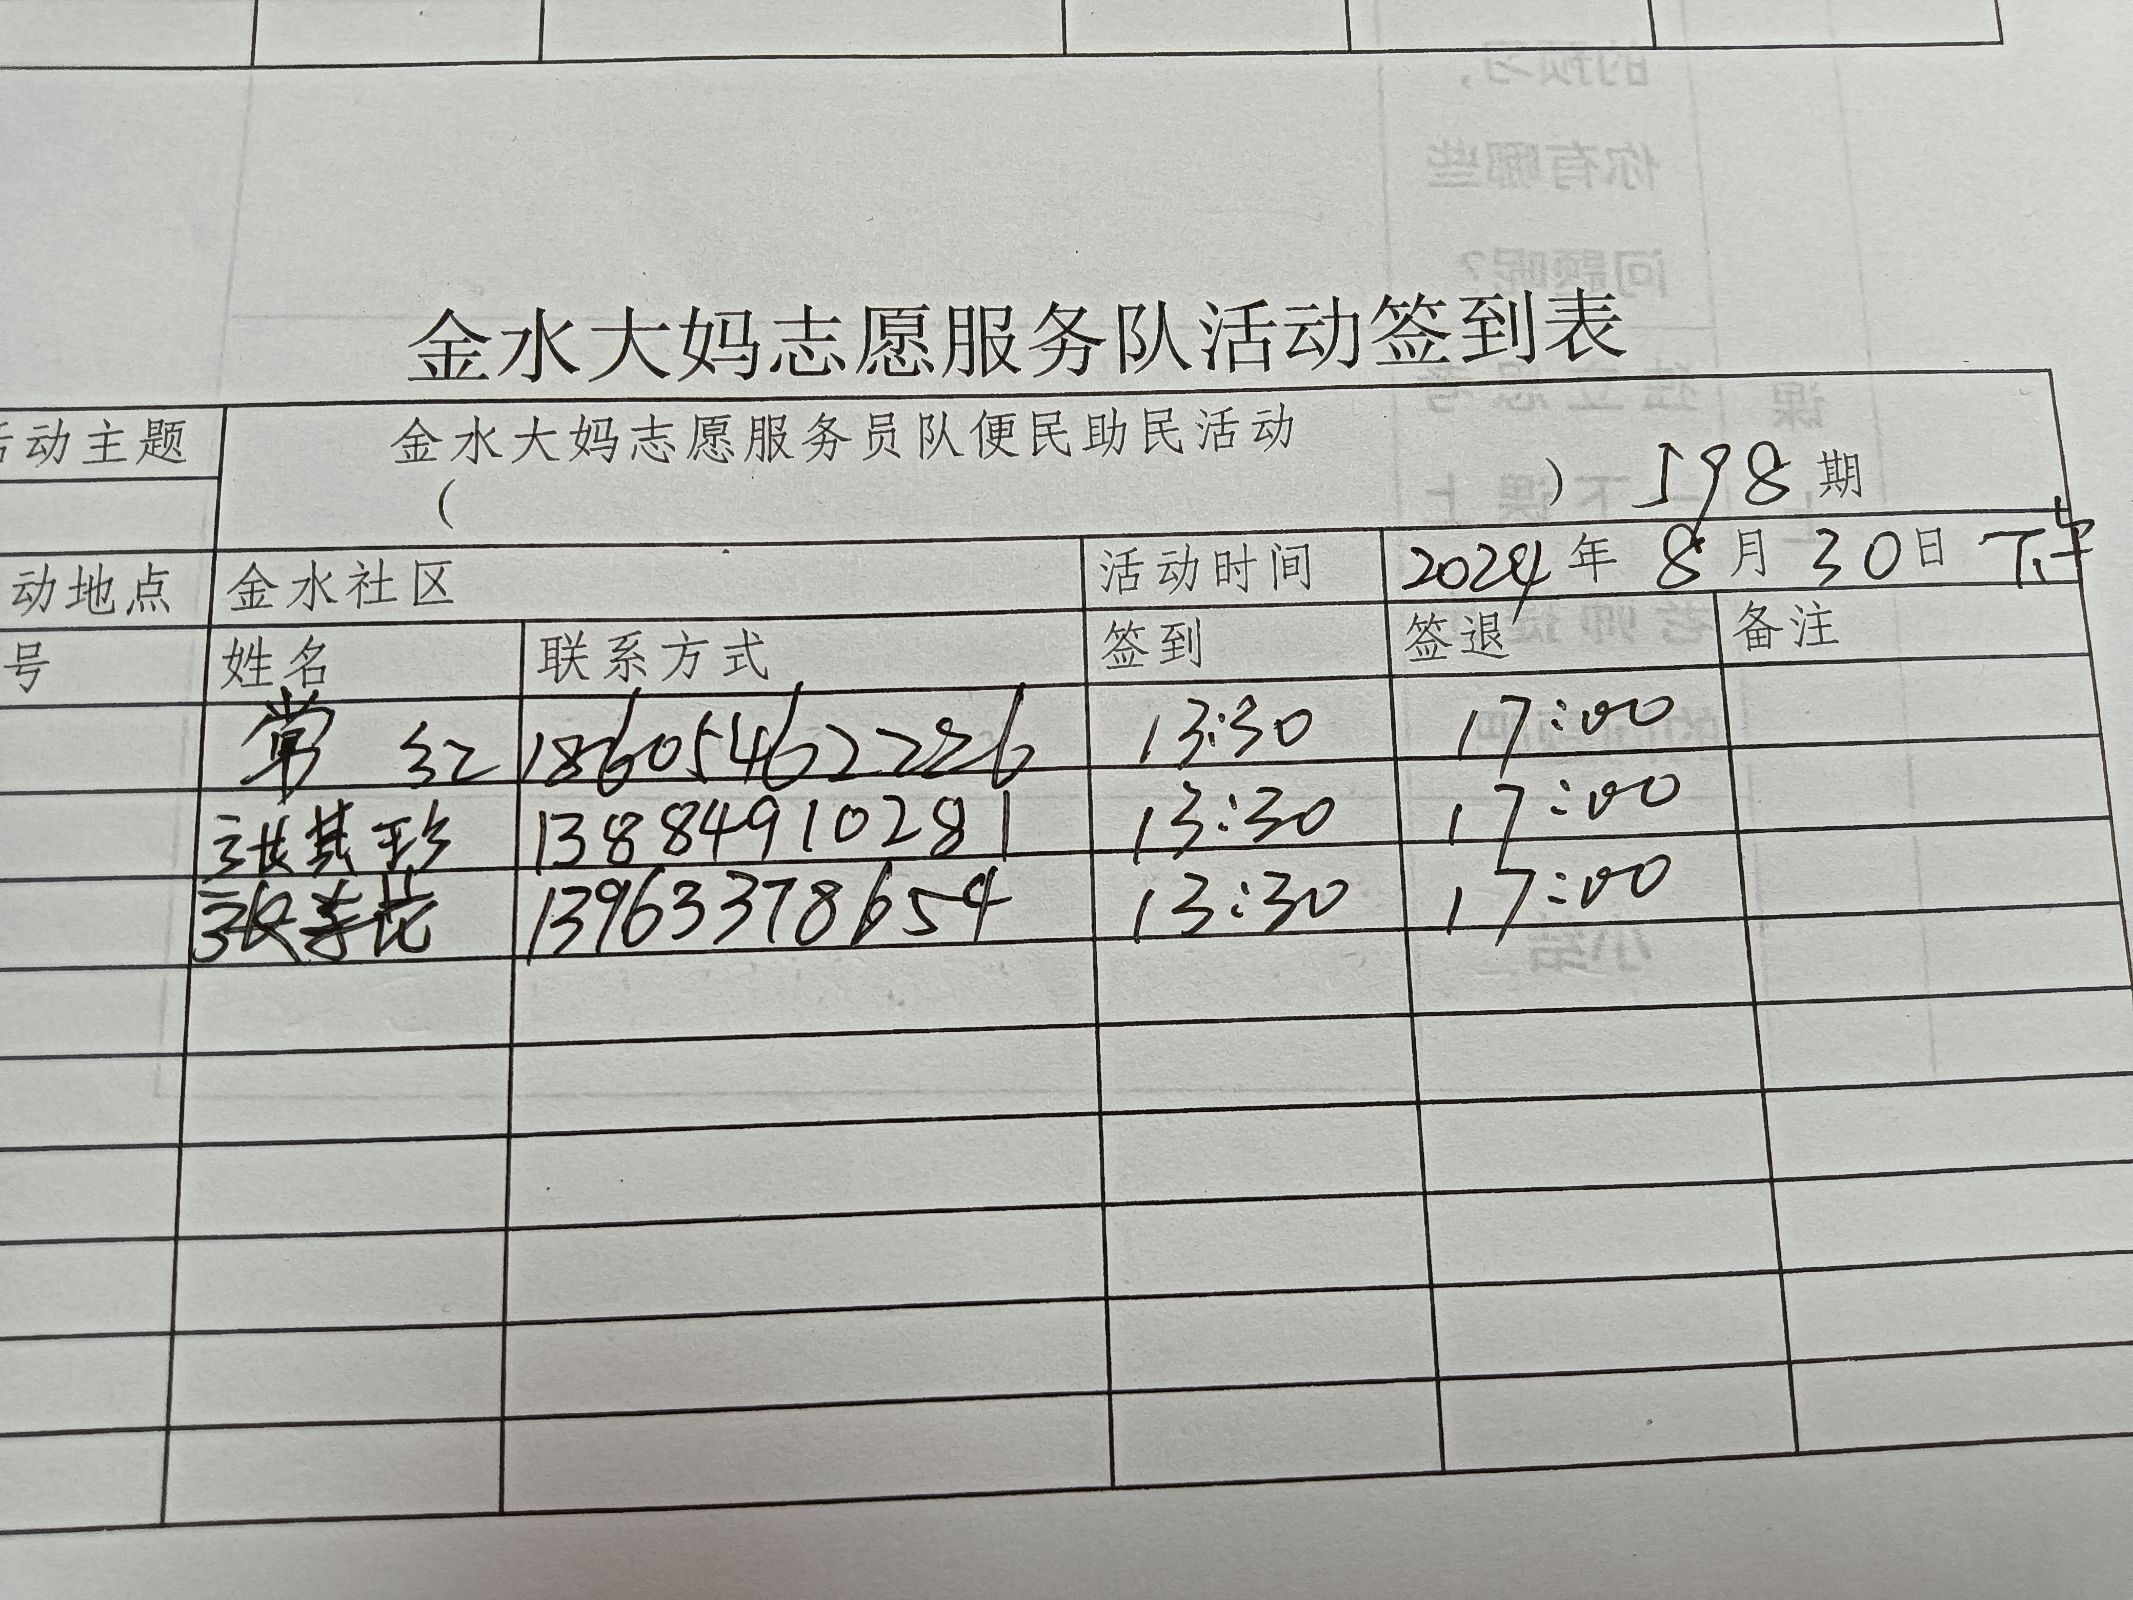 金水大妈志愿服务队活动签到表
活动主题 金水大妈志愿服务员队便民助民活动
( ) 598期
动地点 金水社区 活动时间 2024年 8月 30日 下午
号 姓名 联系方式 签到 签退 备注
常红 18605462226 13:30 17:00
张其珍 13884910281 13:30 17:00
张 13963378654 13:30 17:00